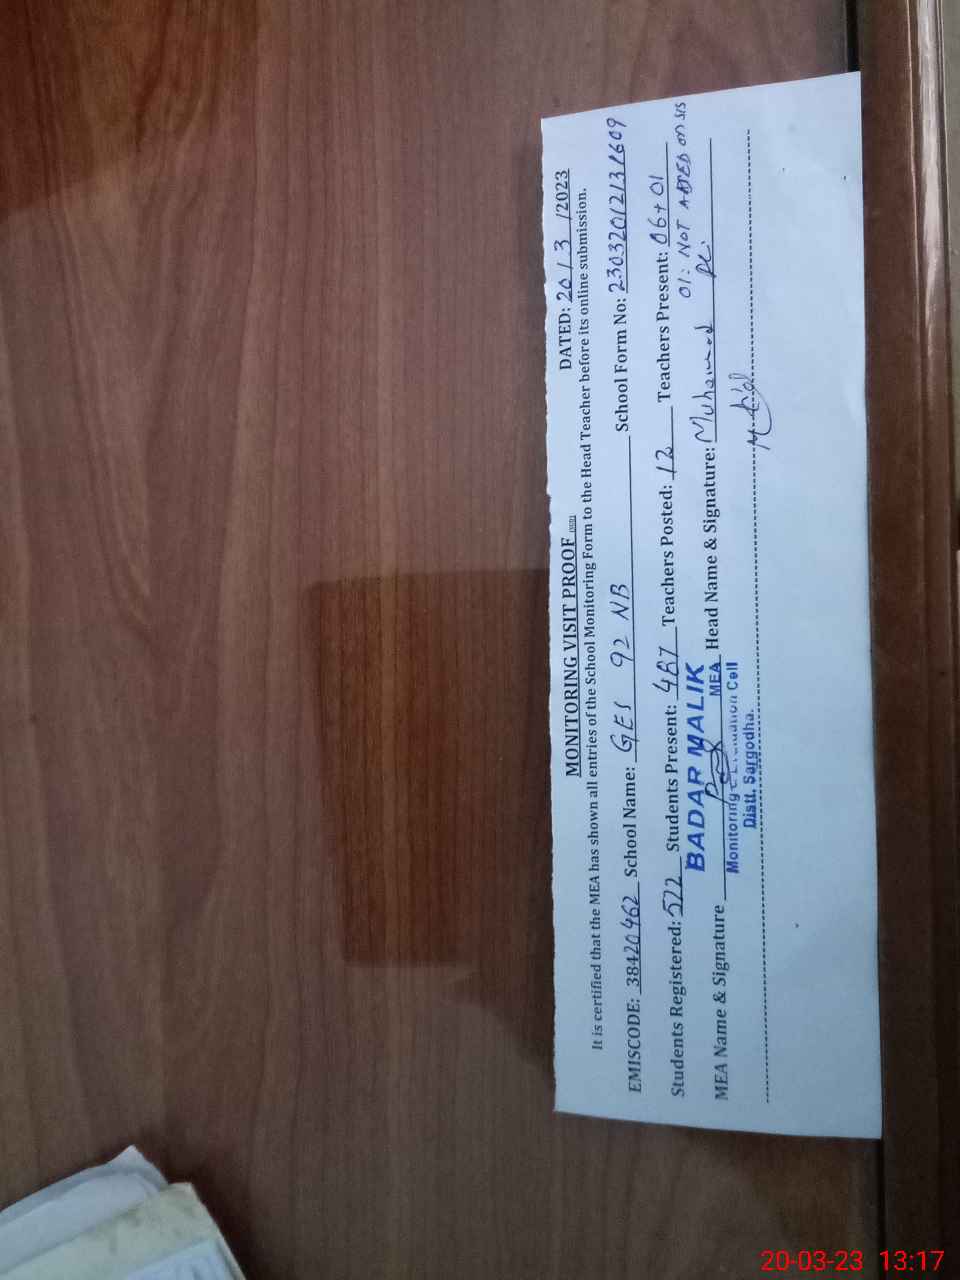 MONITORING VISIT PROOF
DATED: 20/3/2023
It is certified that the MEA has shown all entries of the School Monitoring Form to the Head Teacher before its online submission.
EMISCODE: 38420462 School Name: GES 92 NB School Form No:
Students Registered: 522 Students Present: 487 Teachers Posted: 12 Teachers Present: 06+01
01: NOT ADDED on SIS
BADAR MALIK
MEA
MEA Name & Signature Head Name & Signature: Muhammad
Monitoring Cell
Distt. Sargodha.
20-03-23 13:17